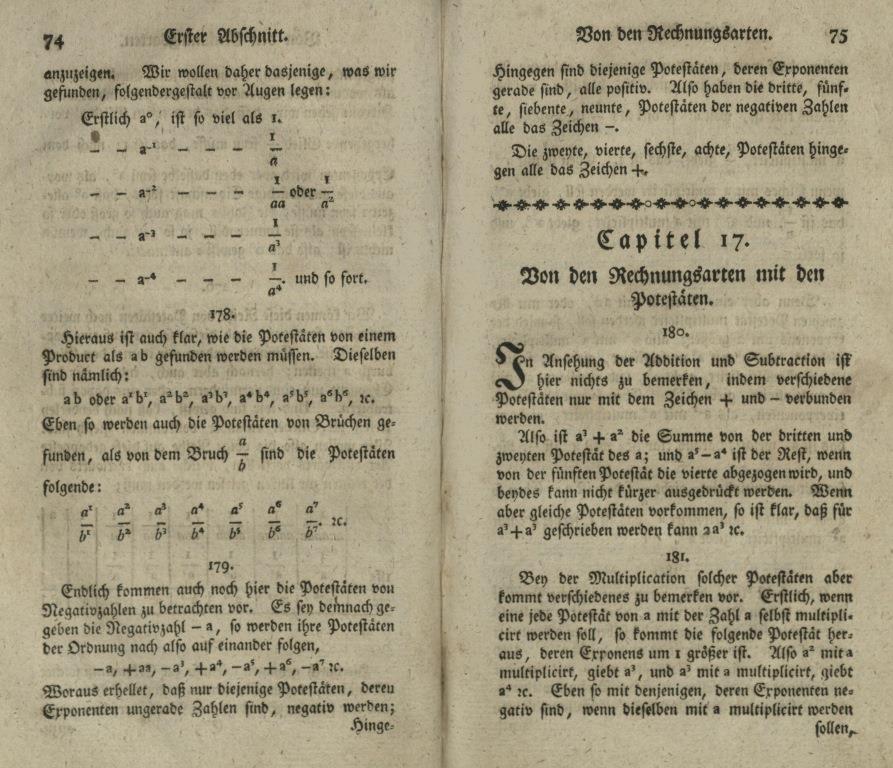 74 Erster Abschnitt.
anzuzeigen. Wir wollen daher dasjenige, was wir
gefunden, folgendergestalt vor Augen legen:
Erstlich a⁰, ist so viel als 1.
— — a⁻¹ — — — 1/a
— — a⁻² — — — 1/aa oder 1/a²
— — a⁻³ — — — 1/a³
— — a⁻⁴ — — — 1/a⁴. und so fort.
178.
Hieraus ist auch klar, wie die Potestäten von einem
Product als ab gefunden werden müssen. Dieselben
sind nämlich:
ab oder a¹b¹, a²b², a³b³, a⁴b⁴, a⁵b⁵, a⁶b⁶, ꝛc.
Eben so werden auch die Potestäten von Brüchen ge-
funden, als von dem Bruch a/b sind die Potestäten
folgende:
a¹/b¹ a²/b² a³/b³ a⁴/b⁴ a⁵/b⁵ a⁶/b⁶ a⁷/b⁷. ꝛc.
179.
Endlich kommen auch noch hier die Potestäten von
Negativzahlen zu betrachten vor. Es sey demnach ge-
geben die Negativzahl — a, so werden ihre Potestäten
der Ordnung nach also auf einander folgen,
—a, +aa, —a³, +a⁴, —a⁵, +a⁶, —a⁷ ꝛc.
Woraus erhellet, daß nur diejenige Potestäten, deren
Exponenten ungerade Zahlen sind, negativ werden;
Hinge-
Von den Rechnungsarten. 75
Hingegen sind diejenige Potestäten, deren Exponenten
gerade sind, alle positiv. Also haben die dritte, fünf-
te, siebente, neunte, Potestäten der negativen Zahlen
alle das Zeichen —.
Die zweyte, vierte, sechste, achte, Potestäten hinge-
gen alle das Zeichen +.
Capitel 17.
Von den Rechnungsarten mit den
Potestäten.
180.
In Ansehung der Addition und Subtraction ist
hier nichts zu bemerken, indem verschiedene
Potestäten nur mit dem Zeichen + und — verbunden
werden.
Also ist a³ + a² die Summe von der dritten und
zweyten Potestät des a; und a⁵—a⁴ ist der Rest, wenn
von der fünften Potestät die vierte abgezogen wird, und
beydes kann nicht kürzer ausgedrückt werden. Wenn
aber gleiche Potestäten vorkommen, so ist klar, daß für
a³+a³ geschrieben werden kann 2a³ ꝛc.
181.
Bey der Multiplication solcher Potestäten aber
kommt verschiedenes zu bemerken vor. Erstlich, wenn
eine jede Potestät von a mit der Zahl a selbst multipli-
cirt werden soll, so kommt die folgende Potestät her-
aus, deren Exponens um 1 größer ist. Also a² mit a
multiplicirt, giebt a³, und a³ mit a multiplicirt, giebt
a⁴ ꝛc. Eben so mit denjenigen, deren Exponenten ne-
gativ sind, wenn dieselben mit a multiplicirt werden
sollen,